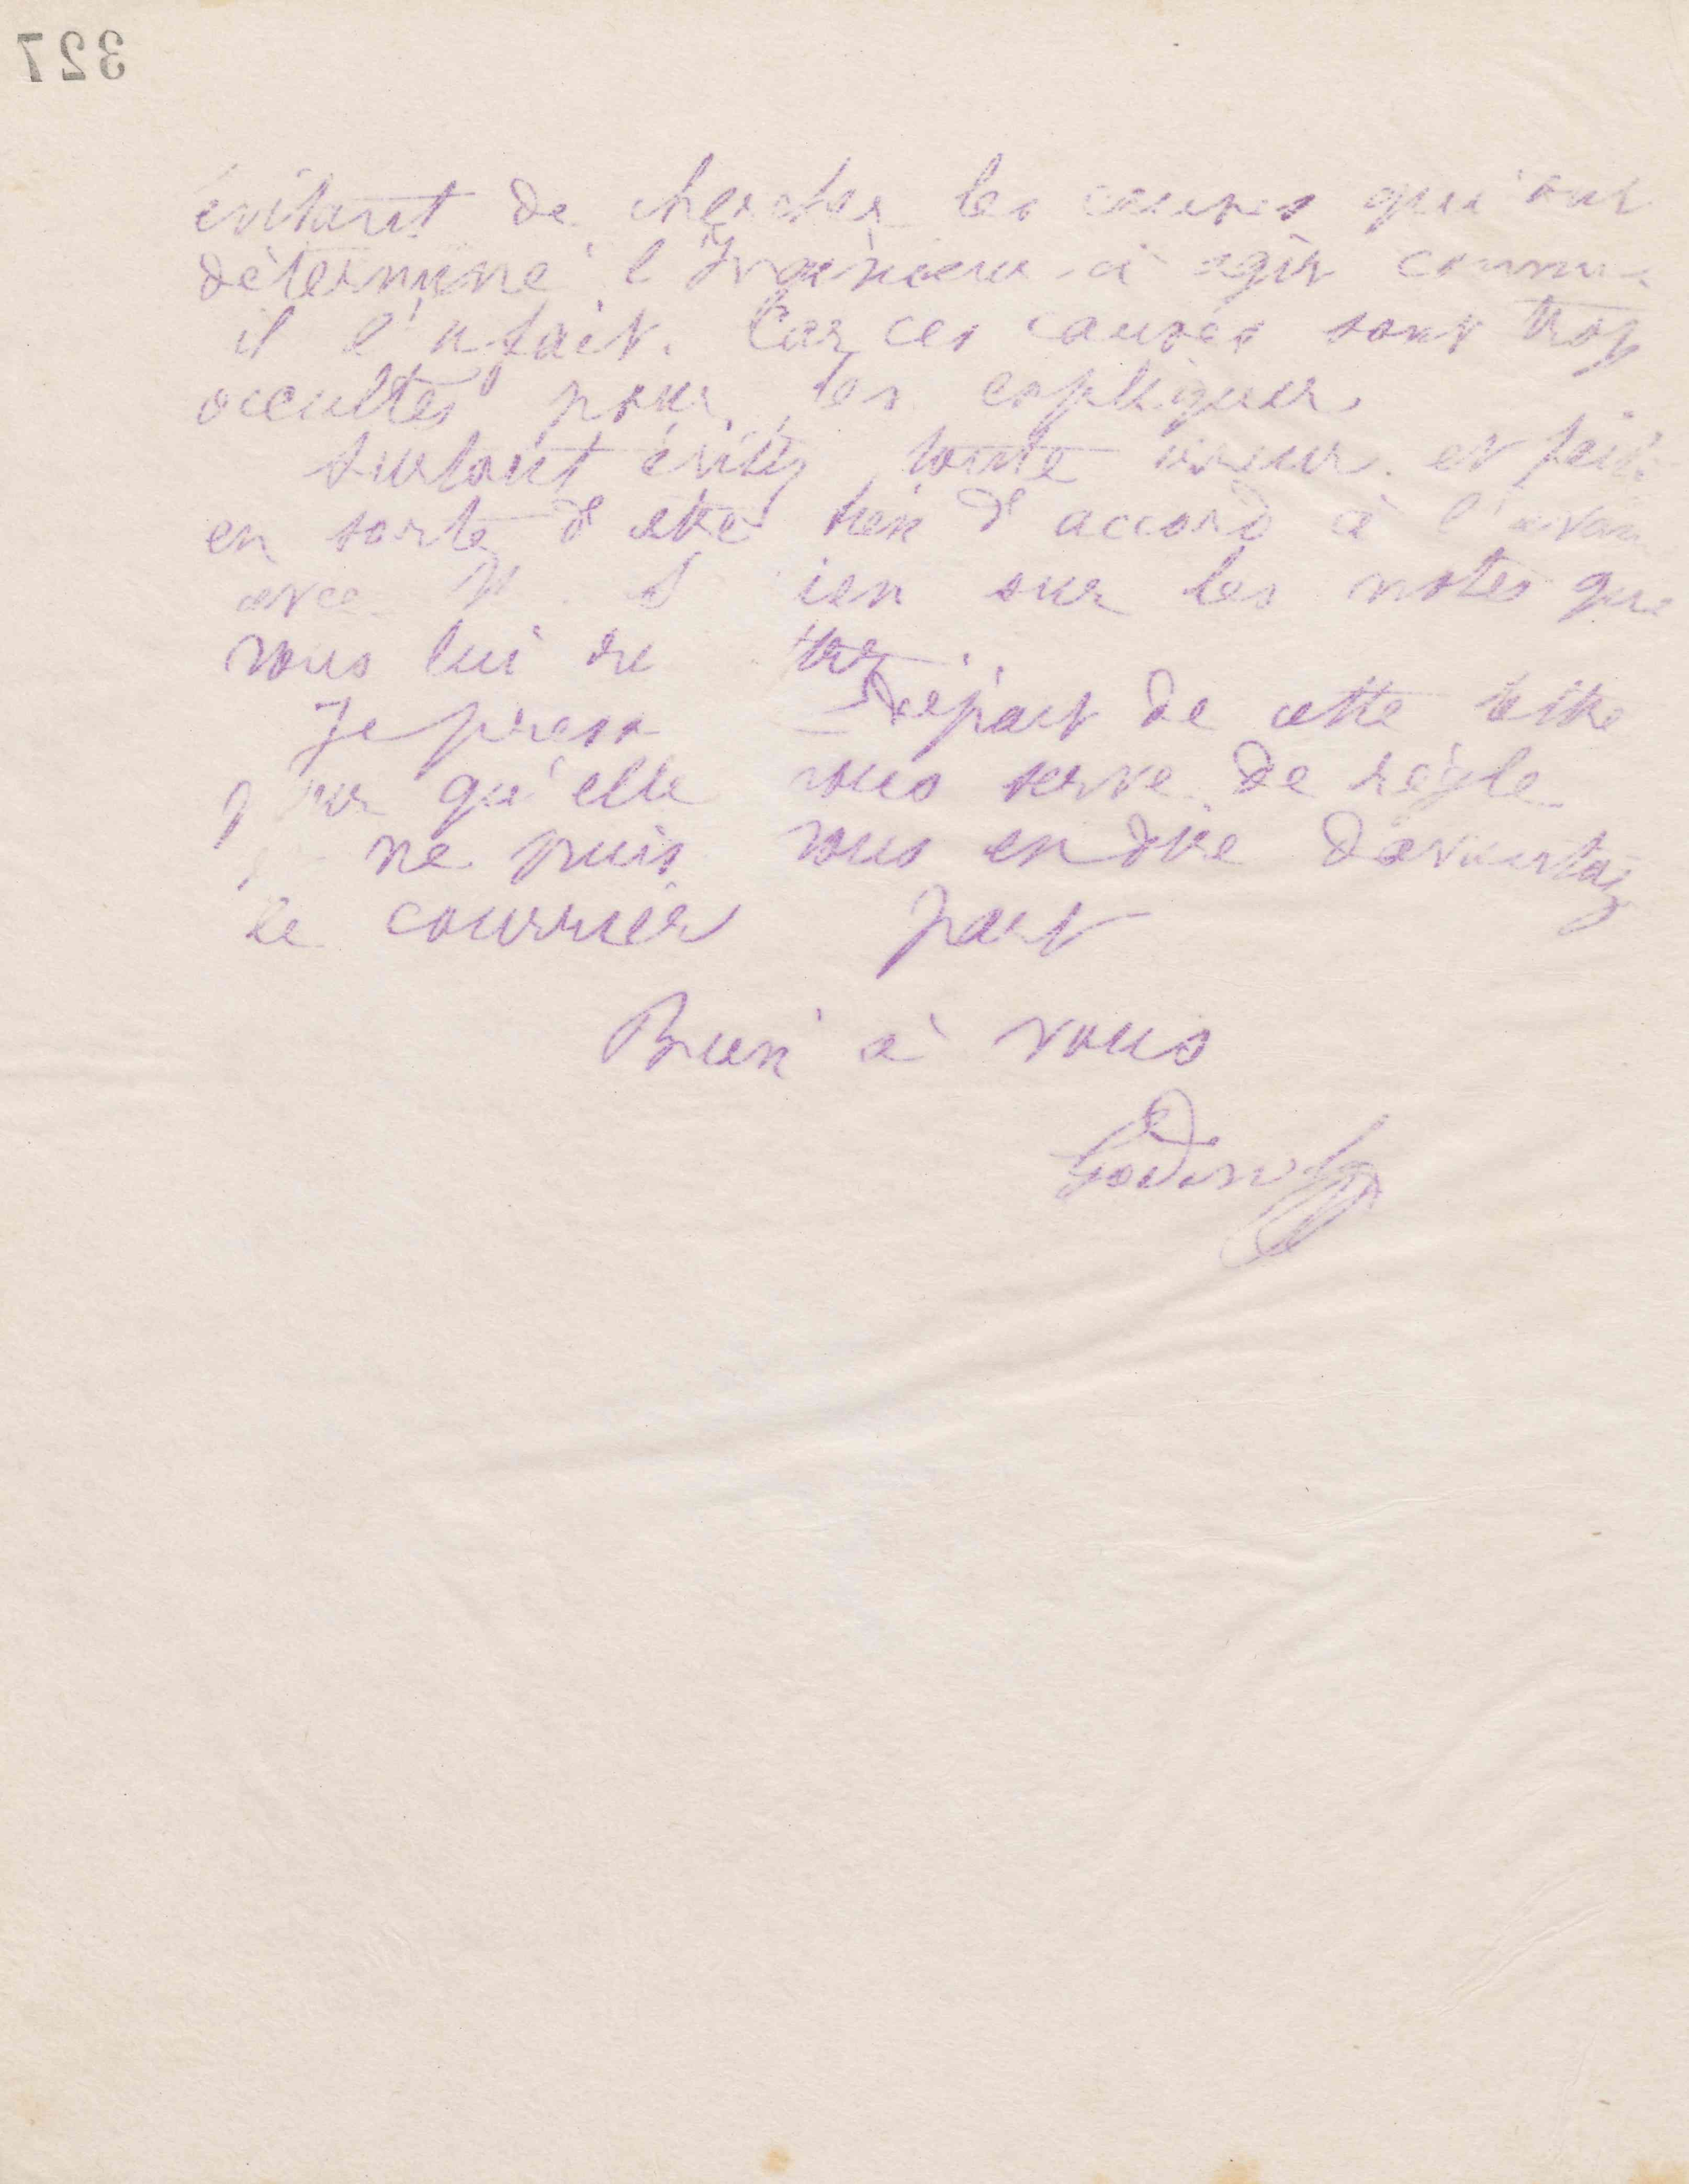 327
évitant de chercher les causes qui ont
déterminé l'Ingénieur à agir comme
il l'a fait. Car ces causes sont trop
occultes pour les expliquer
surtout évitez toute erreur et fait
en sorte d'être bien d'accord à l'avan
avec M. ien sur les notes que
vous lui re ttrez
Je press départ de cette lettre
pour qu'elle vous serve de règle
je ne puis vous en dire davantag
le courrier part
Bien à vous
Godin